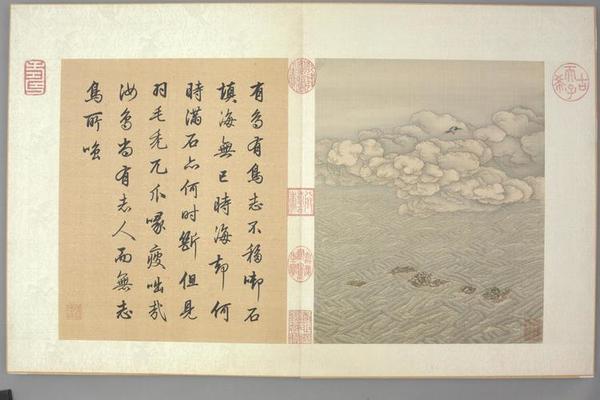 有鳥有鳥志不移啣石
填海無已時海却何
時滿石亦何时斷但見
羽毛禿兀爪喙瘦咄哉
汝鳥尚有志人而無志
鳥所嗤
古希天子